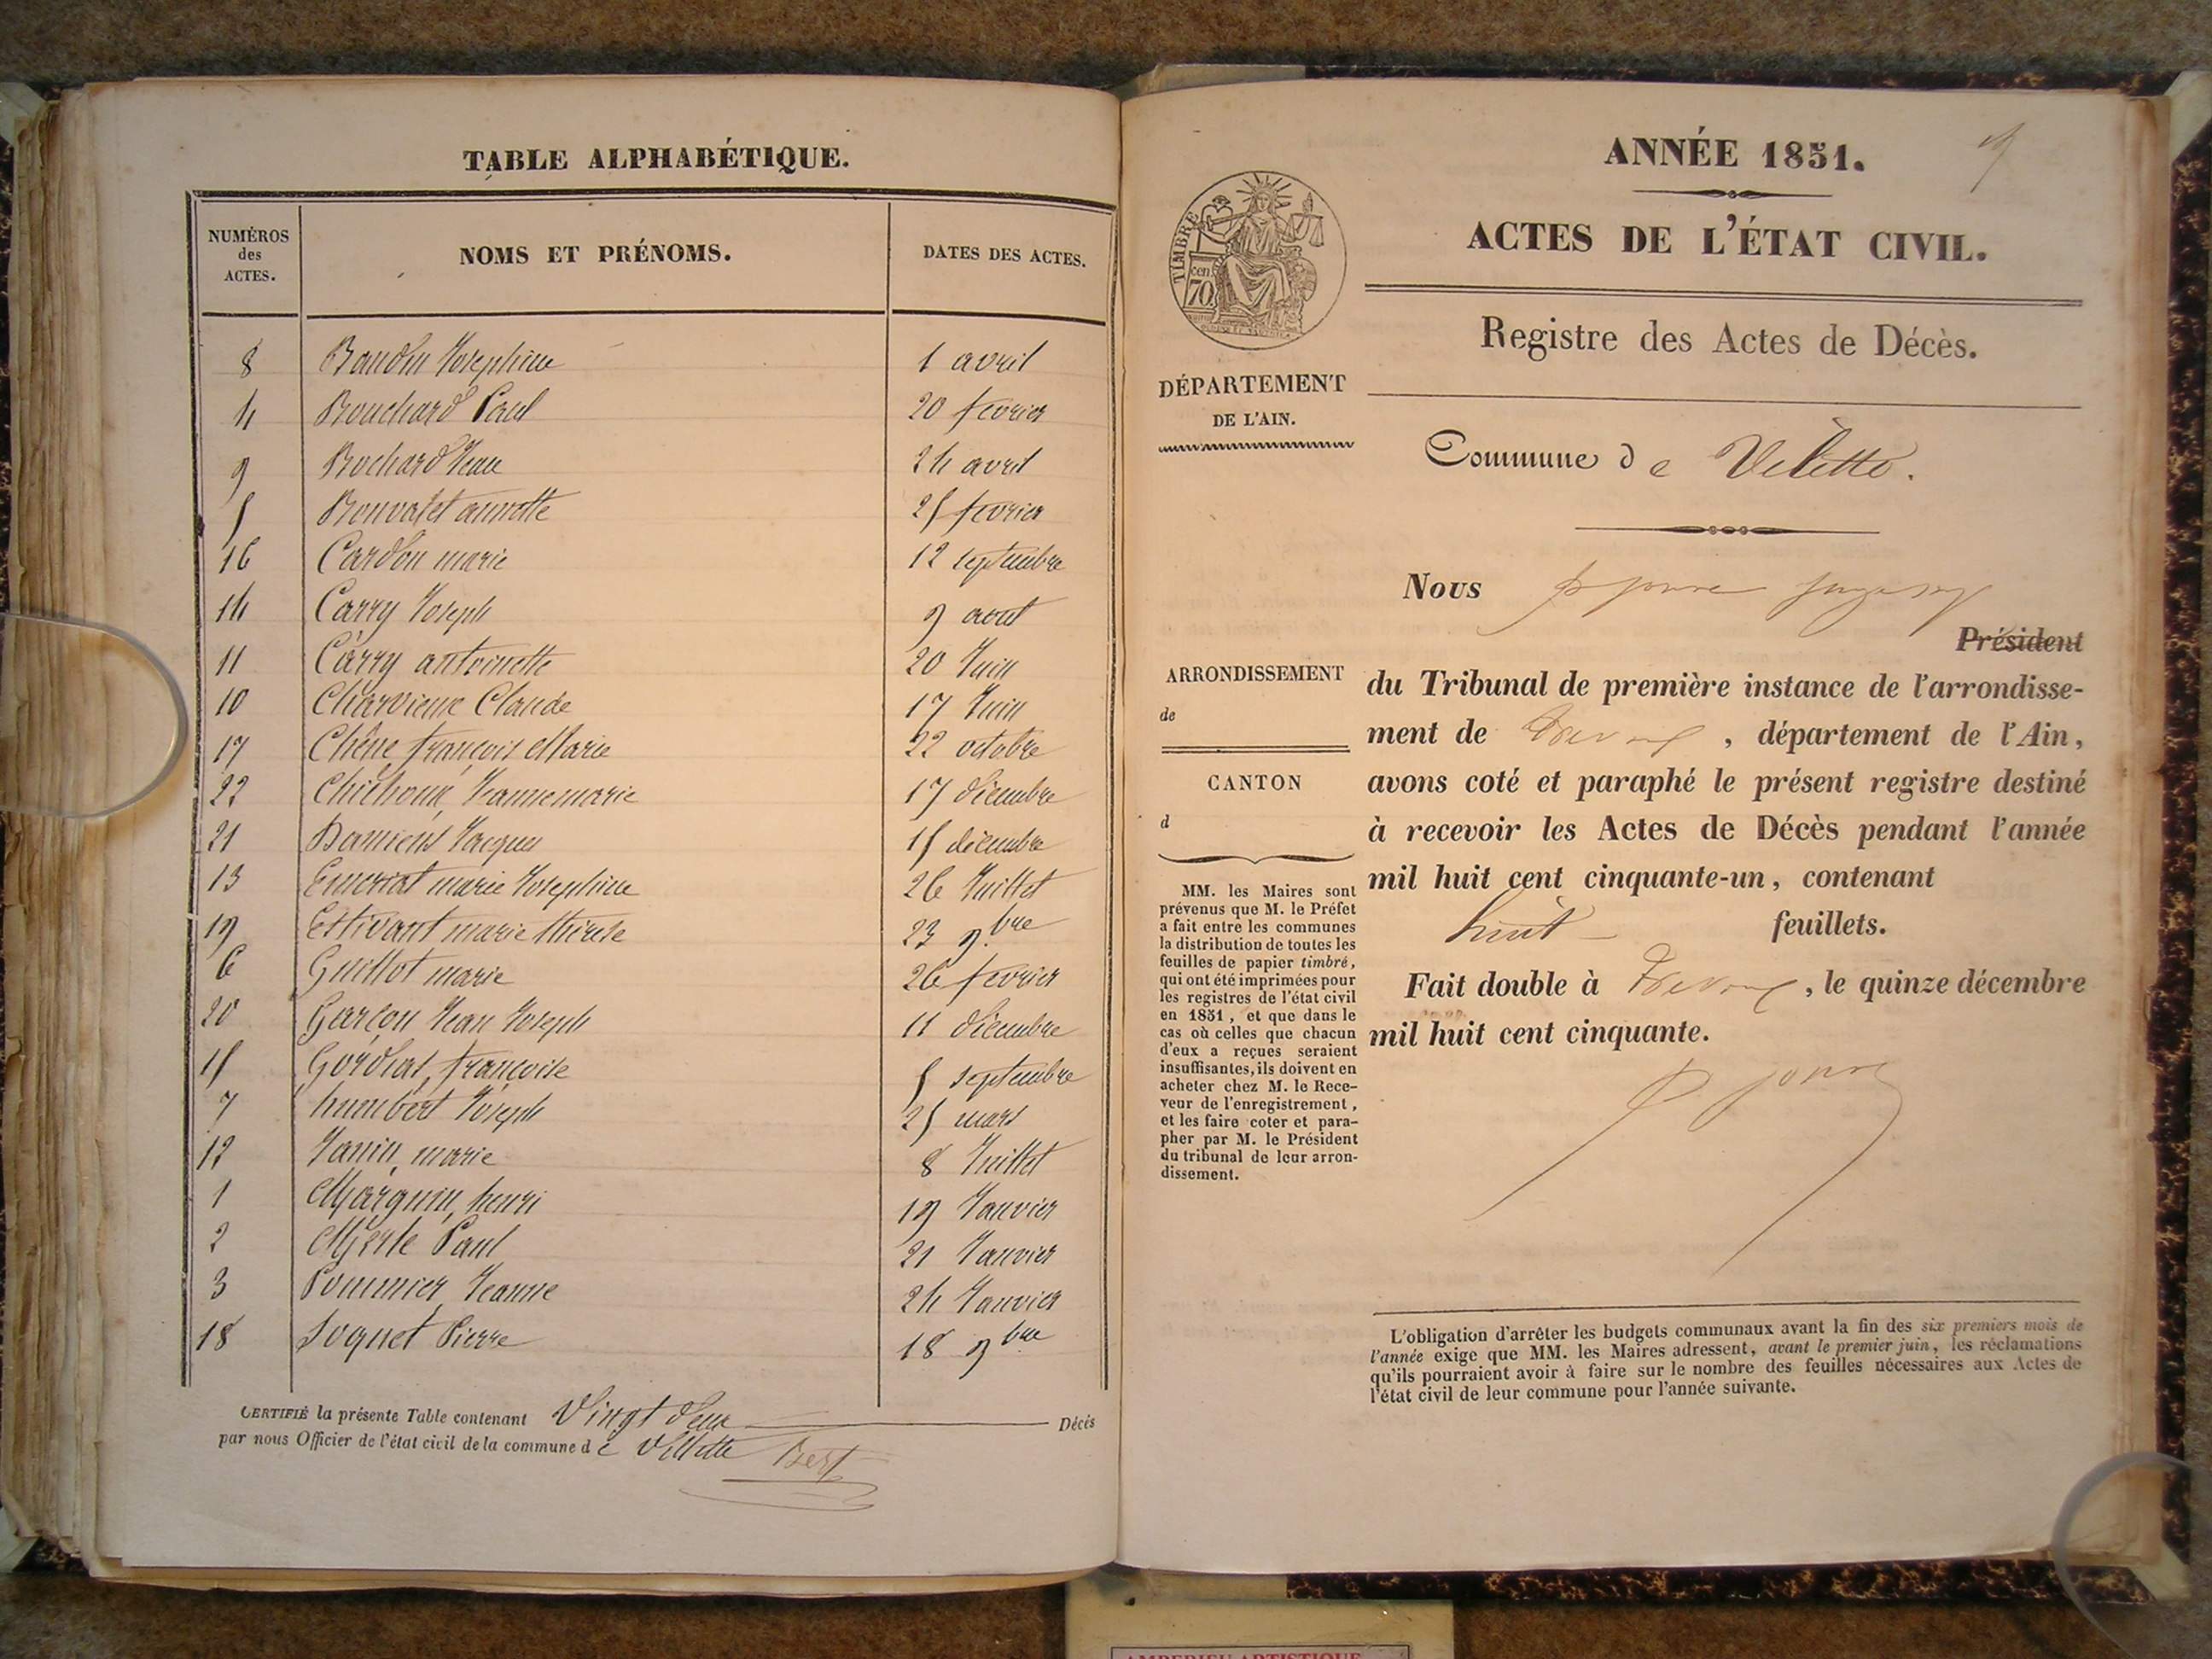 TABLE ALPHABÉTIQUE.
NUMÉROS des ACTES. NOMS ET PRÉNOMS. DATES DES ACTES.
8 Baudin Josephine 1 avril
4 Bouchard Paul 20 fevrier
9 Bochard Jean 24 avril
5 Bonvalet annette 25 fevrier
16 Cardon marie 12 septembre
14 Carry Joseph 9 aout
11 Carry antoinette 20 Juin
10 Charvieux Claude 17 Juin
17 Chêne françois Marie 22 octobre
22 Jeannemarie 17 décembre
21 Damiens Jacques 15 décembre
13 Emeriat marie Josephine 26 Juillet
19 Estivant marie thérese 23 9.bre
6 Guillot marie 26 fevrier
20 Garçon Jean Joseph 11 décembre
15 Gordiat, françoise 5 septembre
7 humbert Joseph 25 mars
12 Janin, marie 8 Juillet
1 Marguin, henri 19 Janvier
2 Merle Paul 21 Janvier
3 Pommier, Jeanne 24 Janvier
18 Soquet Pierre 18 9bre
CERTIFIÉ la présente Table contenant Vingt deux Décès
par nous Officier de l'état civil de la commune d e Villette
ANNÉE 1851.
ACTES DE L'ÉTAT CIVIL.
TIMBRE
70 cen.
Registre des Actes de Décès.
DÉPARTEMENT
DE L'AIN.
Commune d e Villette.
Nous
Président
ARRONDISSEMENT
de
CANTON
d
du Tribunal de première instance de l'arrondisse-
ment de Trévoux, département de l'Ain,
avons coté et paraphé le présent registre destiné
à recevoir les Actes de Décès pendant l'année
mil huit cent cinquante-un, contenant
huit feuillets.
Fait double à Trévoux, le quinze décembre
mil huit cent cinquante.
MM. les Maires sont
prévenus que M. le Préfet
a fait entre les communes
la distribution de toutes les
feuilles de papier timbré,
qui ont été imprimées pour
les registres de l'état civil
en 1851, et que dans le
cas où celles que chacun
d'eux a reçues seraient
insuffisantes, ils doivent en
acheter chez M. le Rece-
veur de l'enregistrement,
et les faire coter et para-
pher par M. le Président
du tribunal de leur arron-
dissement.
L'obligation d'arrêter les budgets communaux avant la fin des six premiers mois de
l'année exige que MM. les Maires adressent, avant le premier juin, les réclamations
qu'ils pourraient avoir à faire sur le nombre des feuilles nécessaires aux Actes de
l'état civil de leur commune pour l'année suivante.
AMBERIEU ARTISTIQUE